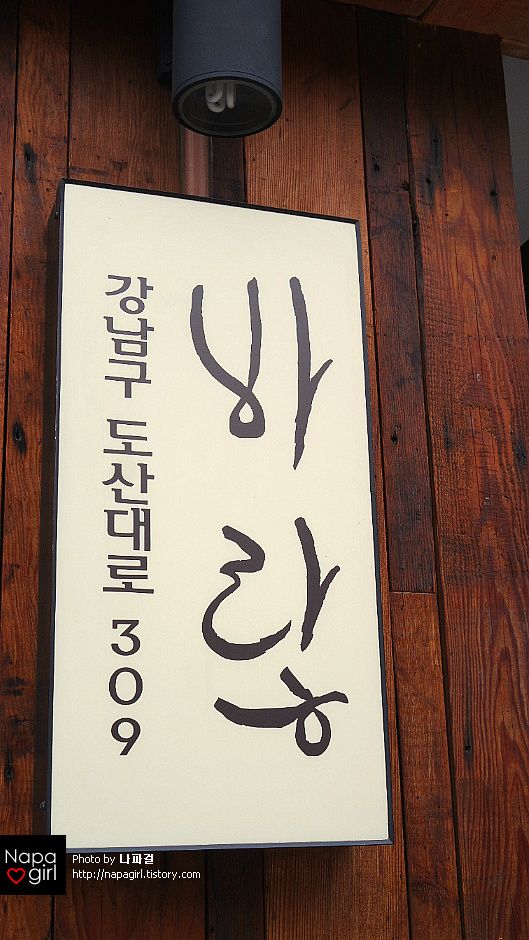 바랗
강남구 도산대로 309
Napa girl
Photo by 나파걸
http://napagirl.tistory.com